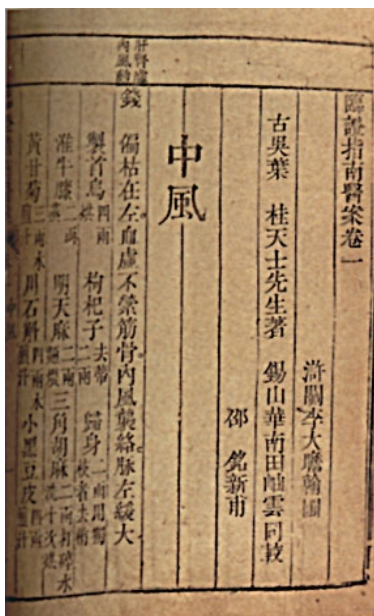 臨證指南醫案卷一
滸關李大瞻翰圃
古吳葉 桂天士先生著 錫山華南田岫雲同較
邵 銘新甫
中風
肝腎虛
內風動
錢 偏枯在左血虛不縈筋骨內風襲絡脉左緩大
製首烏四兩烘 枸杞子去蒂二兩 歸身二兩用獨枝者去梢
淮牛膝二兩蒸 明天麻二兩麵煨 三角胡麻二兩打碎水洗十次烘
黃甘菊三兩水煎汁 川石斛四兩水煎汁 小黑豆皮四兩煎汁